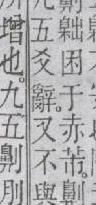 困于赤芾。劓
九五爻辭。又不與
增也。九五劓刖